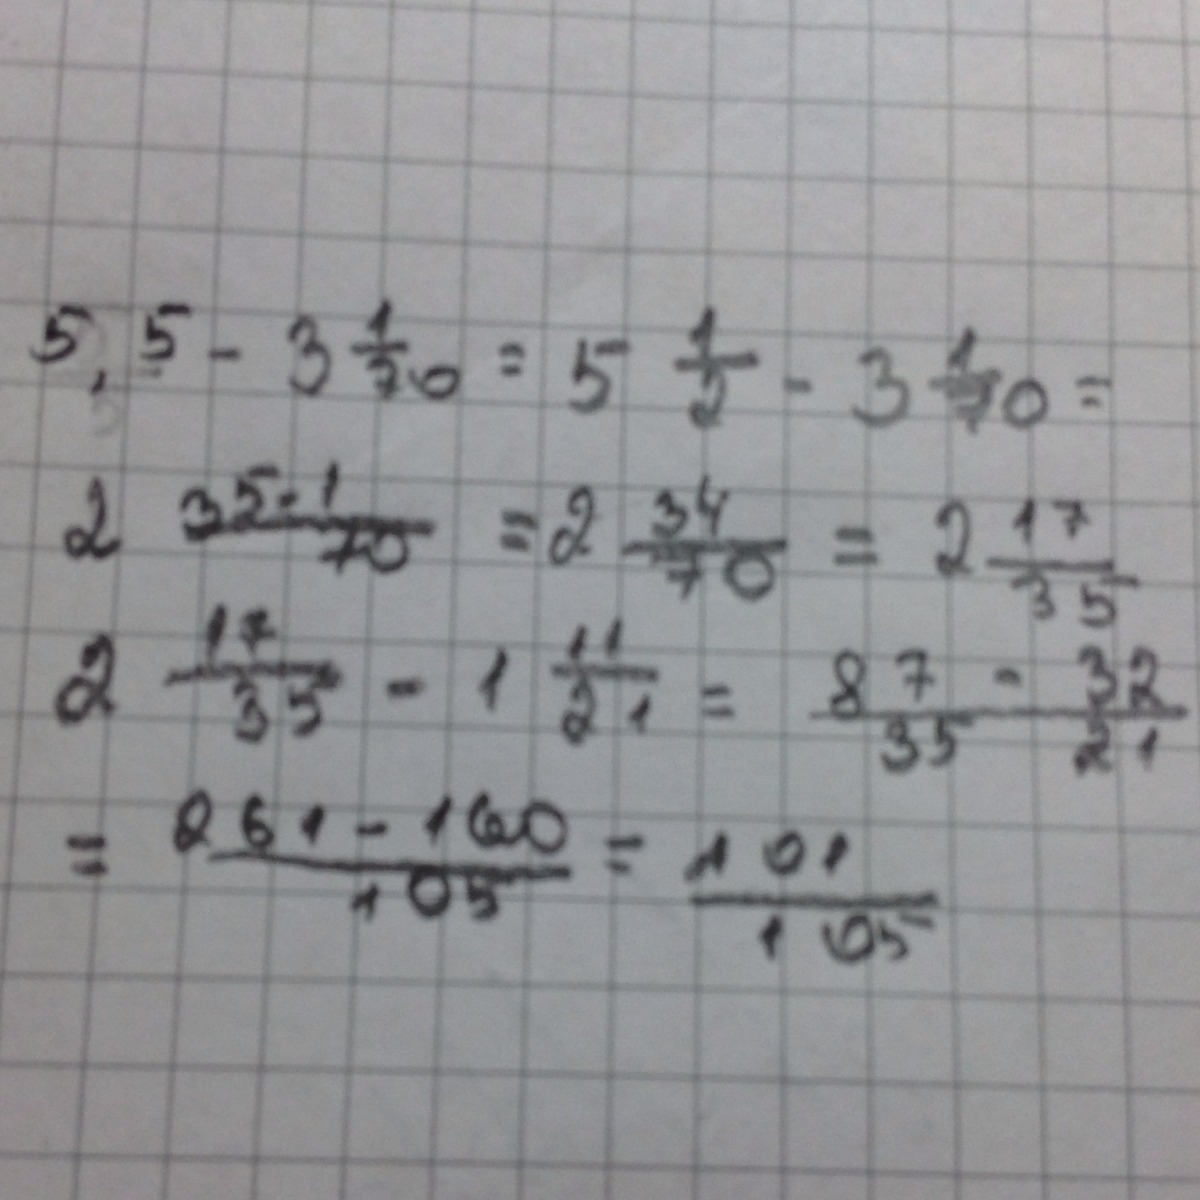 5,5 - 3 1/70 = 5 1/2 - 3 1/70 =
2 35-1/70 = 2 34/70 = 2 17/35
2 17/35 - 1 11/21 = 87/35 - 32/21
= 261-160/105 = 101/105